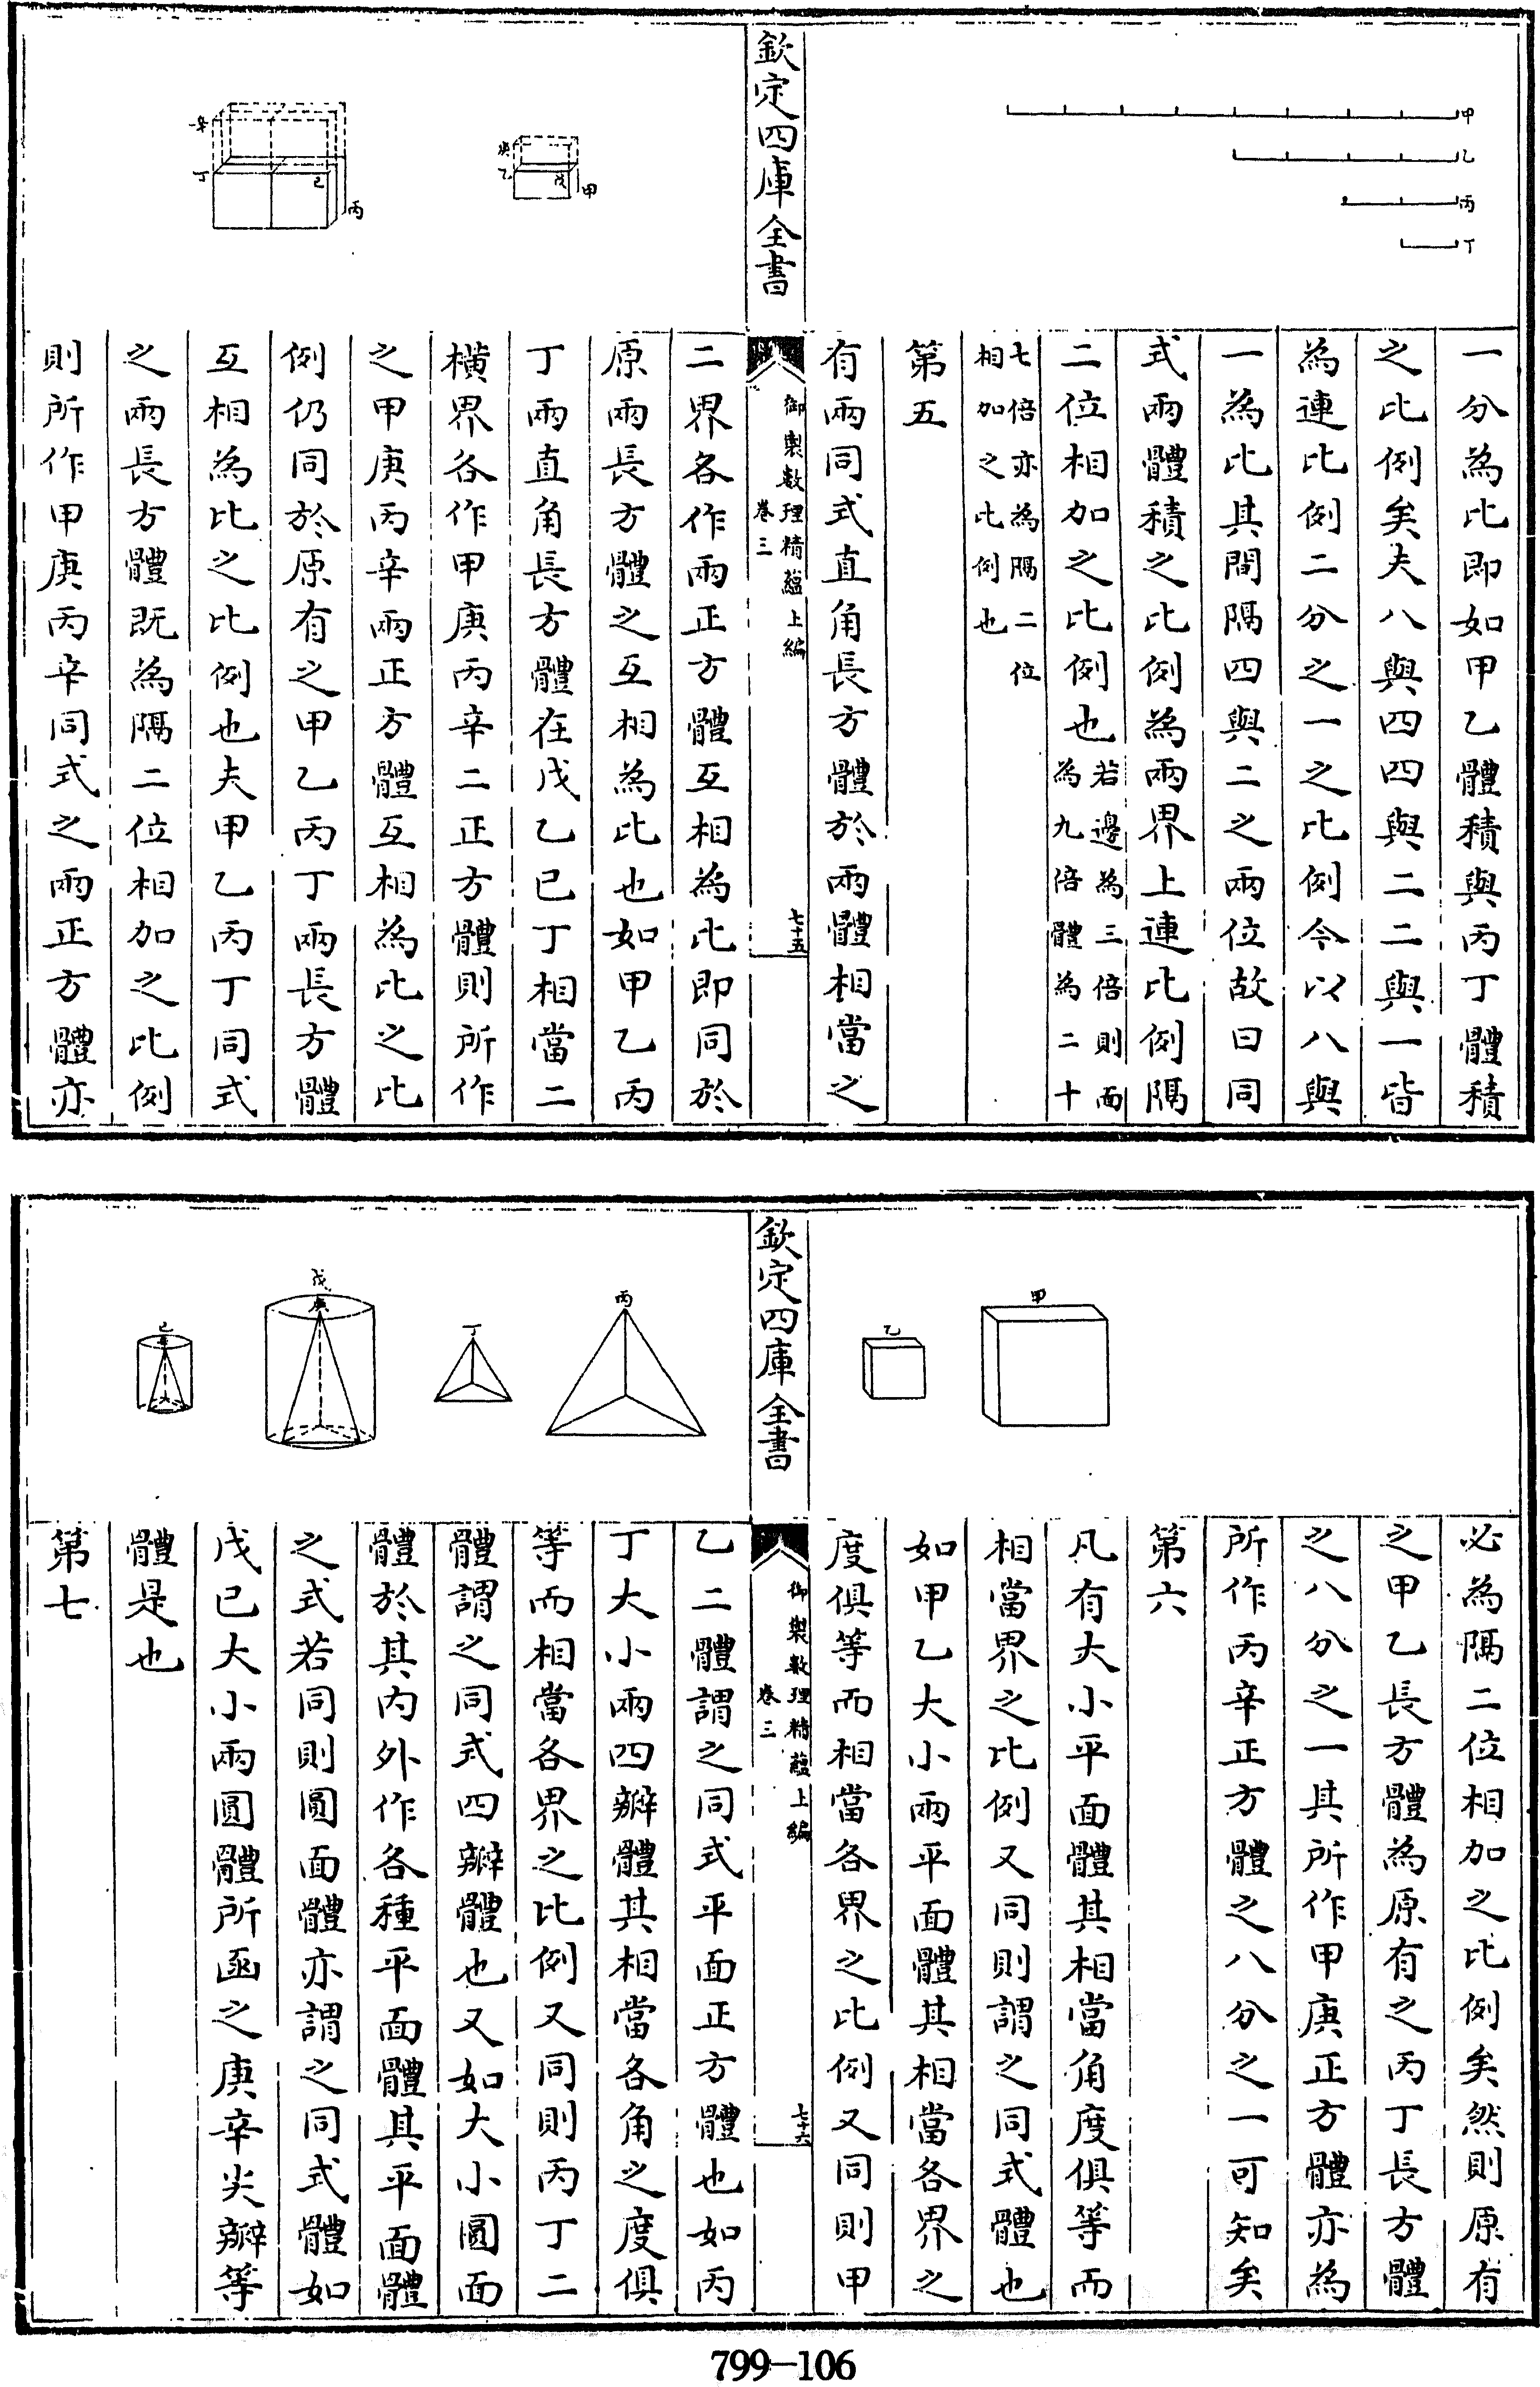 甲
乙
丙
丁
一分為比即如甲乙體積與丙丁體積
之比例矣夫八與四四與二二與一皆
為連比例二分之一之比例今以八與
一為比其間隔四與二之兩位故曰同
式兩體積之比例為兩界上連比例隔
二位相加之比例也若邊為三倍則面
為九倍體為二十
七倍亦為隔二位
相加之比例也
第五
有兩同式直角長方體於兩體相當之
欽定四庫全書
御製數理精蘊上編
卷三
七十五
甲
乙
戊
庚
丙
丁
己
辛
二界各作兩正方體互相為比即同於
原兩長方體之互相為比也如甲乙丙
丁兩直角長方體在戊乙己丁相當二
橫界各作甲庚丙辛二正方體則所作
之甲庚丙辛兩正方體互相為比之比
例仍同於原有之甲乙丙丁兩長方體
互相為比之比例也夫甲乙丙丁同式
之兩長方體既為隔二位相加之比例
則所作甲庚丙辛同式之兩正方體亦
甲
乙
必為隔二位相加之比例矣然則原有
之甲乙長方體為原有之丙丁長方體
之八分之一其所作甲庚正方體亦為
所作丙辛正方體之八分之一可知矣
第六
凡有大小平面體其相當角度俱等而
相當界之比例又同則謂之同式體也
如甲乙大小兩平面體其相當各界之
度俱等而相當各界之比例又同則甲
欽定四庫全書
御製數理精蘊上編
卷三
七十六
丙
丁
戊
庚
己
辛
乙二體謂之同式平面正方體也如丙
丁大小兩四瓣體其相當各角之度俱
等而相當各界之比例又同則丙丁二
體謂之同式四瓣體也又如大小圓面
體於其內外作各種平面體其平面體
之式若同則圓面體亦謂之同式體如
戊己大小兩圓體所函之庚辛尖瓣等
體是也
第七
799-106